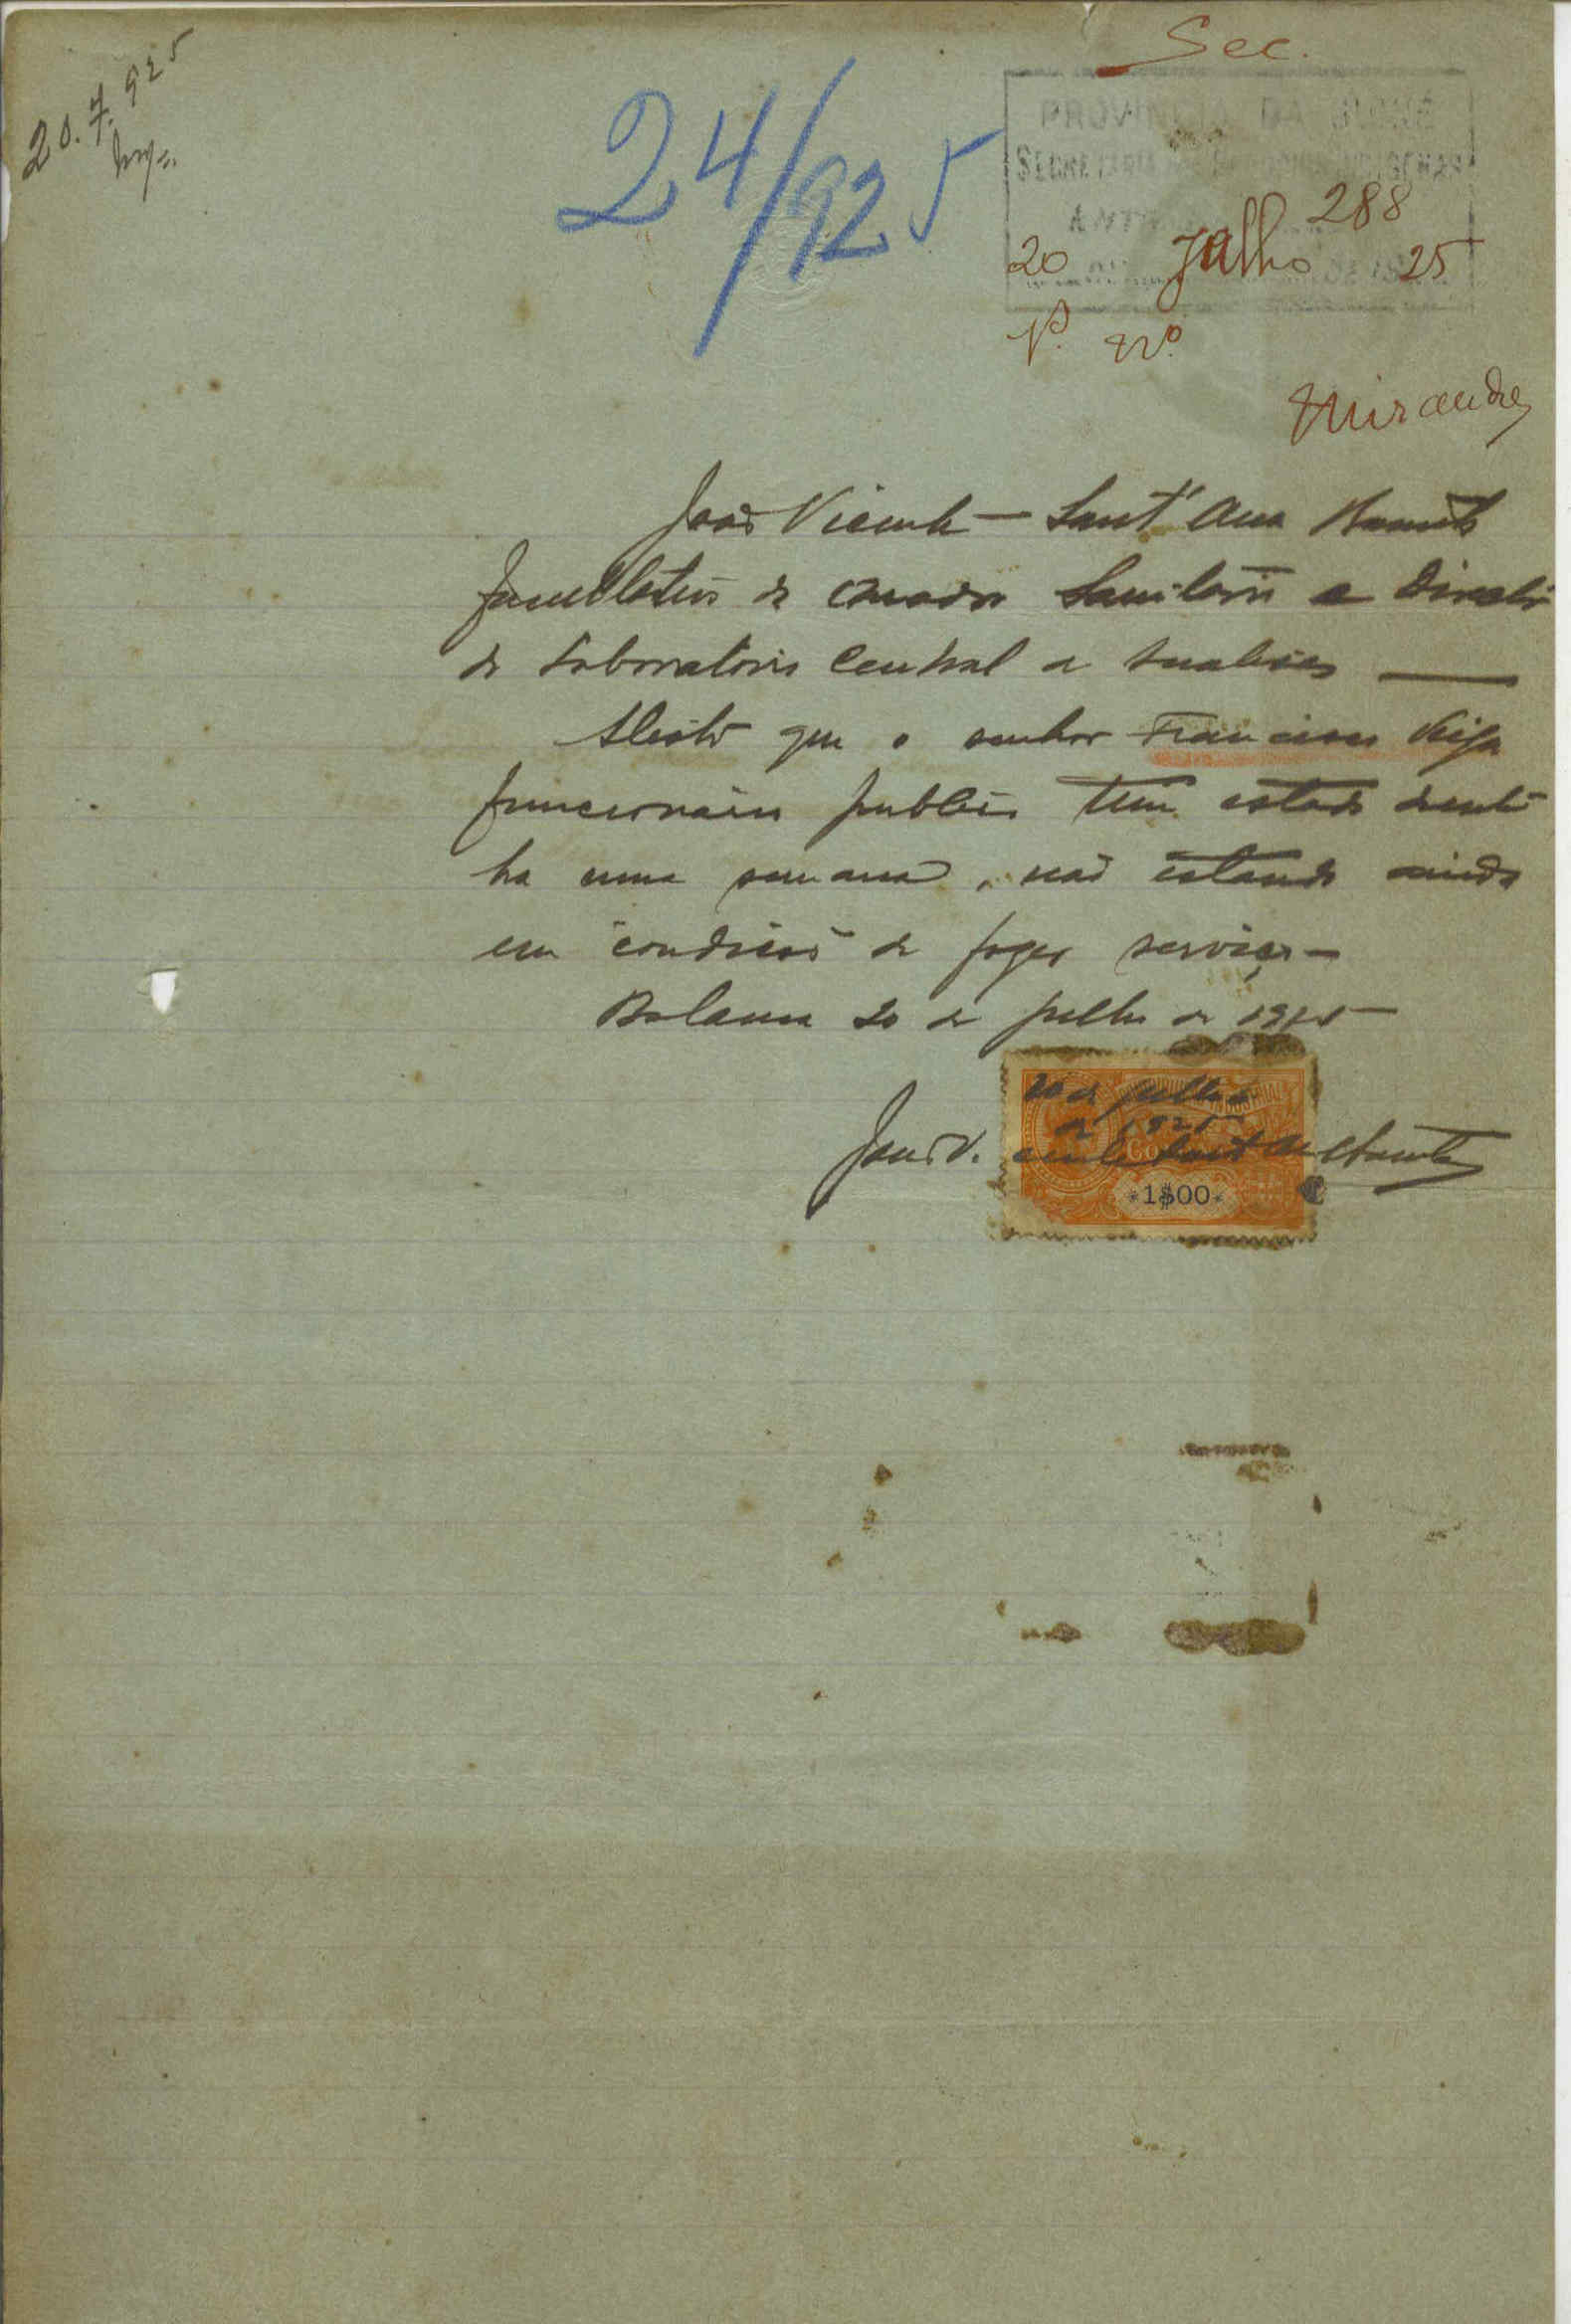 20.7.925
24/925
Sec.
PROVINCIA DA GUINÉ
SECRETARIA DOS NEGOCIOS INDIGENAS
288
20 Julho 25
Miranda
João Vicente Sant'Ana Barreto
facultativo do quadro Sanitario e Director
do Laboratorio Central de Analises
Atesto que o senhor Francisco Veiga
funcionario publico tem estado doente
ha uma semana, não estando ainda
em condições de fazer serviço -
Bolama 20 de julho de 1925
20 de julho
de 1925
João Vicente Sant'Ana Barreto
1$00